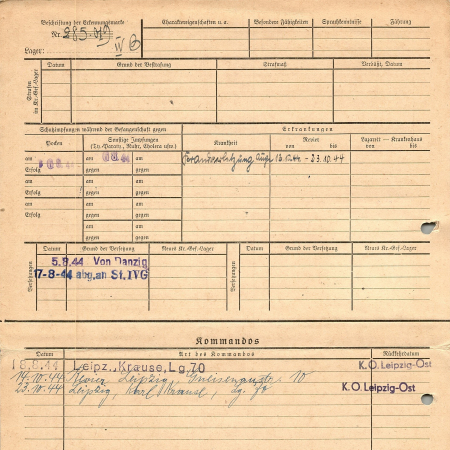 Beschriftung der Erkennungsmarke
Nr. 285
IV B
Lager:
Charaktereigenschaften u. a.
Besondere Fähigkeiten
Sprachkenntnisse
Führung
Strafen im Kr.-Gef.-Lager
Datum
Grund der Bestrafung
Strafmaß
Verbüßt, Datum
Schutzimpfungen während der Gefangenschaft gegen
Erkrankungen
Pocken
Sonstige Impfungen
(Ty.-Paraty., Ruhr, Cholera usw.)
Krankheit
Revier
von bis
Lazarett — Krankenhaus
von bis
am
Erfolg
am
Erfolg
am
Erfolg
am am
gegen gegen
am am
gegen gegen
am am
gegen gegen
am am
gegen gegen
Auge 13.10.44 - 23.10.44
Versetzungen
Datum
Grund der Versetzung
Neues Kr.-Gef.-Lager
Versetzungen
Datum
Grund der Versetzung
Neues Kr.-Gef.-Lager
5.8.44 Von Danzig
17-8-44 abg. an St. IVG
Kommandos
Datum
Art des Kommandos
Rückkehrdatum
18.8.44 Leipz., Krause, Lg. 70
K.O. Leipzig-Ost
14.10.44 Leipzig, 10
23.10.44 Leipzig, Karl Krause, Lg. 70
K.O. Leipzig-Ost